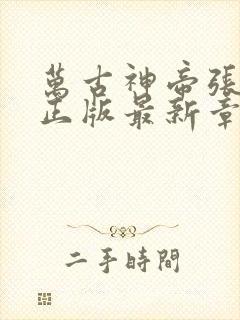 萬古神帝張
正版最新章
二手時間